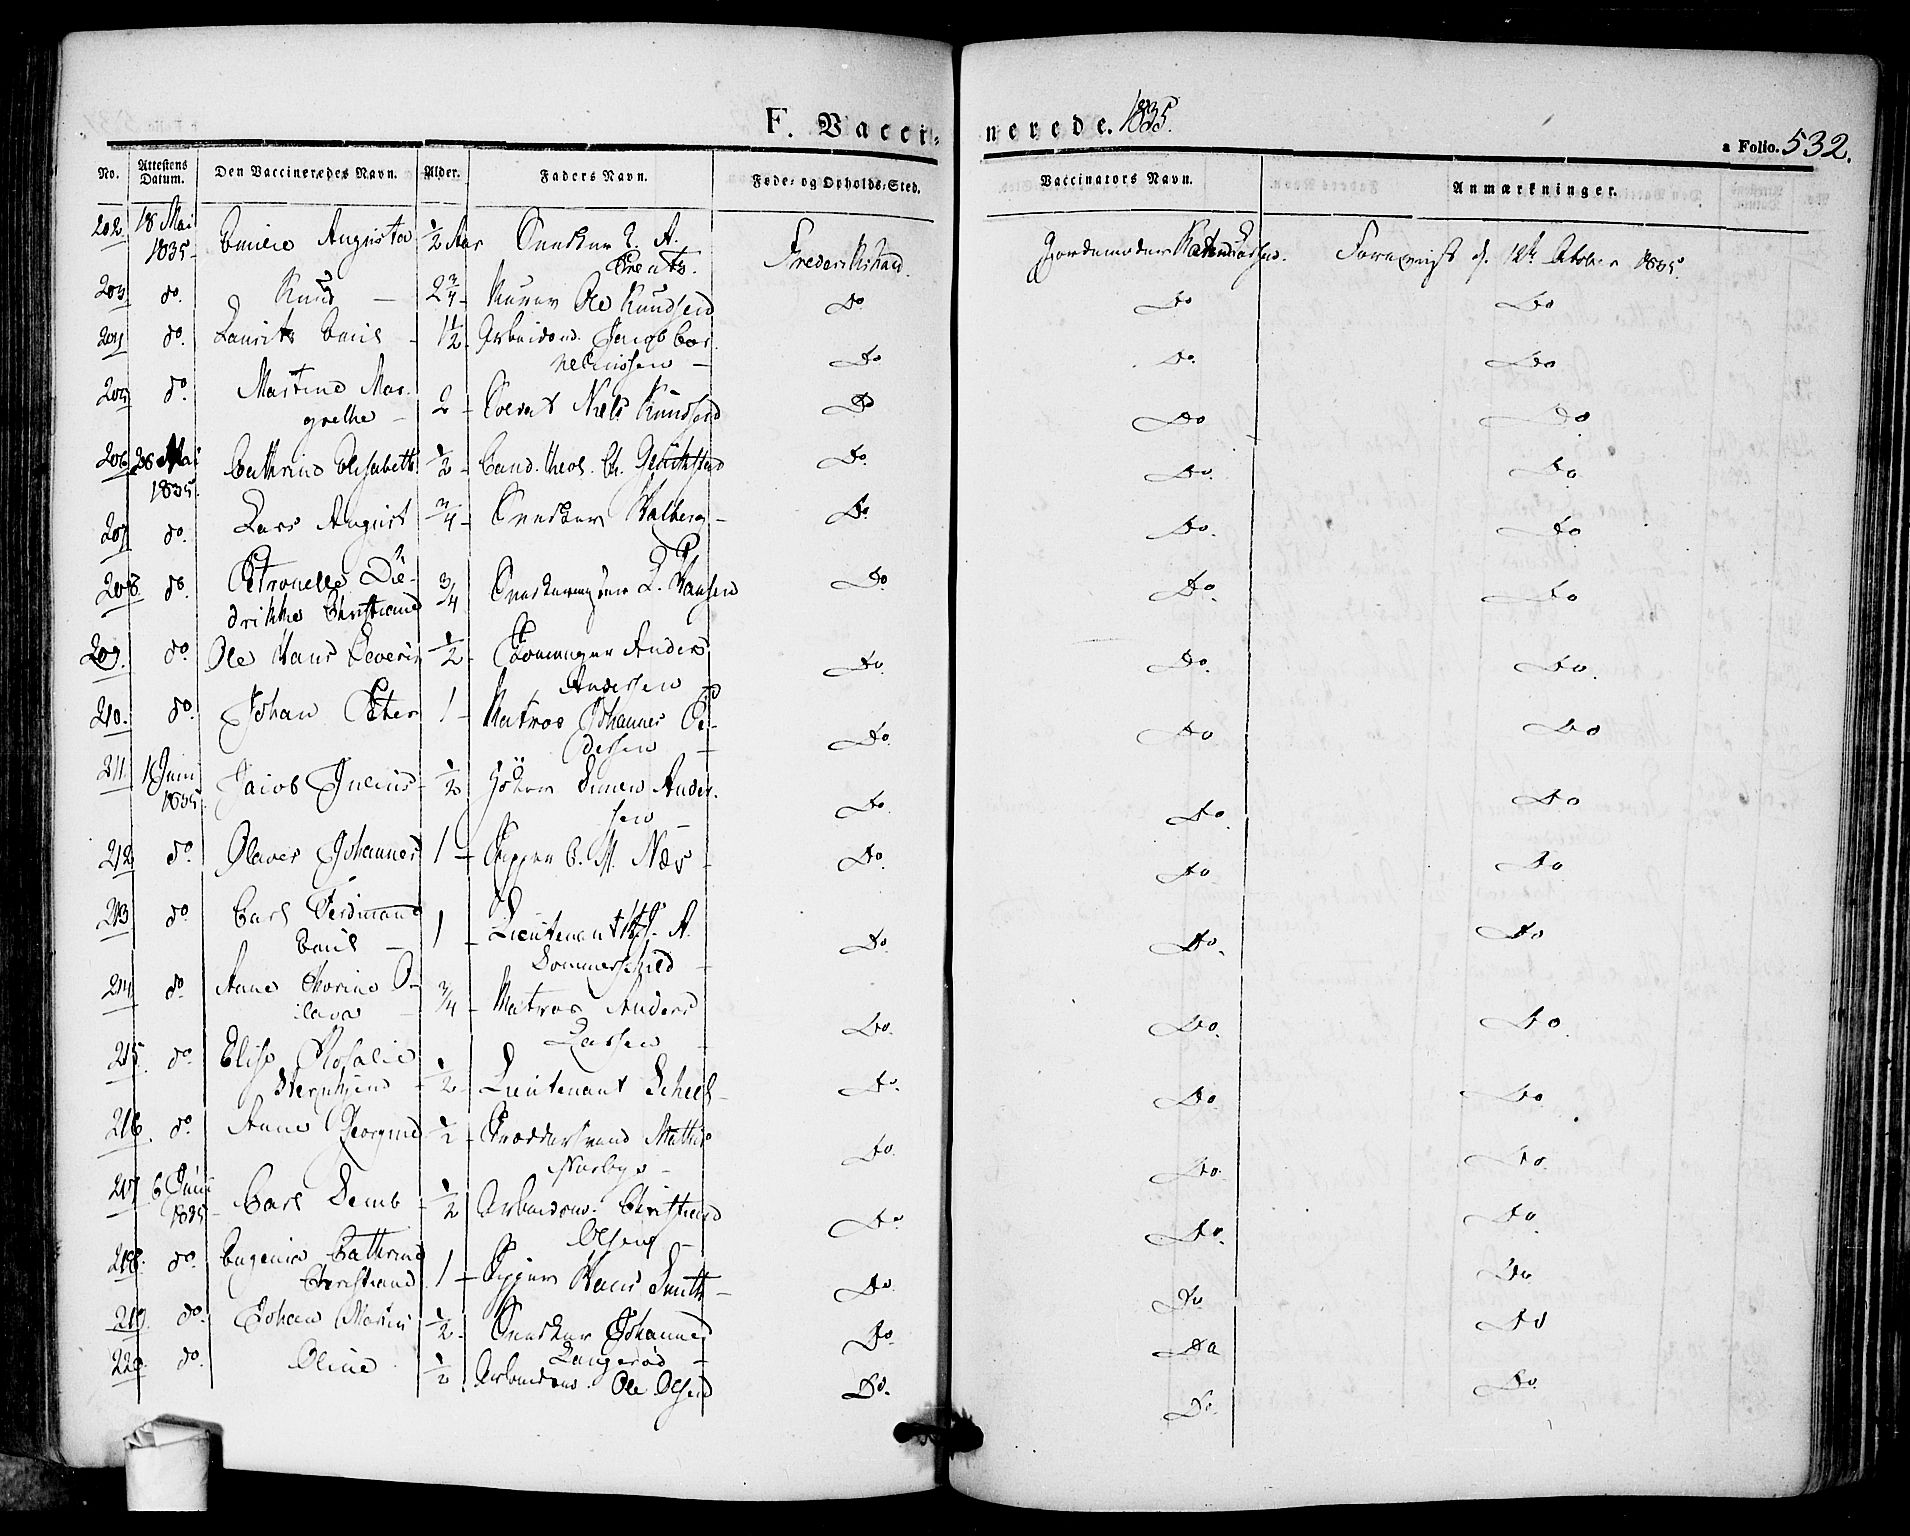 F. Vacci-
nerede. 1835.
a Folio. 532.
No. Attestens Datum. Den Vaccineredes Navn. Alder. Faders Navn. Føde- og Opholds-Sted. Vaccinators Navn. Anmærkninger.
202. 18 Mai 1835 Emilie Augusta ½ Aar Snedker A. Frederikshald. Jordemoder Forevist d. October 1835.
203 do. Knud 2¾ Murer Ole Knudsen Do Do Do
204 do. Laurits Emil 1½ Arbeidsm. Jacob Cor-
neliussen Do Do. Do
205 do. Martine Mar-
grethe 2 Soldat Niels Knudsen Do Do Do
206 26 Mai 1835. Cathrine Elisabeth ½ Cand. theol. Ch. Do. Do. Do
207 do. Lars August ¾ Snedker Do. Do. Do
208 do. Petronelle Die-
drikke Christiane ¾ L. Hansen Do Do. Do
209. do. Ole Hans Severin ½ Anders
Andersen Do. Do. Do.
210. do. Johan Peter 1 Matros Johannes Pe-
dersen Do. Do Do
211. 1 Juni 1835. Jacob Julius ½ Simen Ander-
sen Do. Do. Do
212 do. Olaves Johannes 1 Skipper C. M. Næs Do. Do Do
213 do. Carl Ferdinand
Emil 1 Lieutenant A.
Sommerschield Do. Do. Do
214 do. Anne Thorine O-
lava ¾ Matros Anders
Larsen Do. Do. Do.
215. do. Elise Rosalie
½ Lieutenant Scheel Do. Do. Do.
216. do. Anne Georgine ½ Mathis
Norbye Do. Do. Do.
217 6 Juni 1835 Carl ½ Arbeidsm. Christian
Olsen Do Do. Do.
218. do. Eugenie Cathrine
Christiane 1 Skipper Hans Smith Do. Do Do
219 do. Johan ½ Snedker Johannes
Langerød Do. Do Do
220. do. Oline ½ Arbeidsm. Ole Olsen Do. Do. Do.